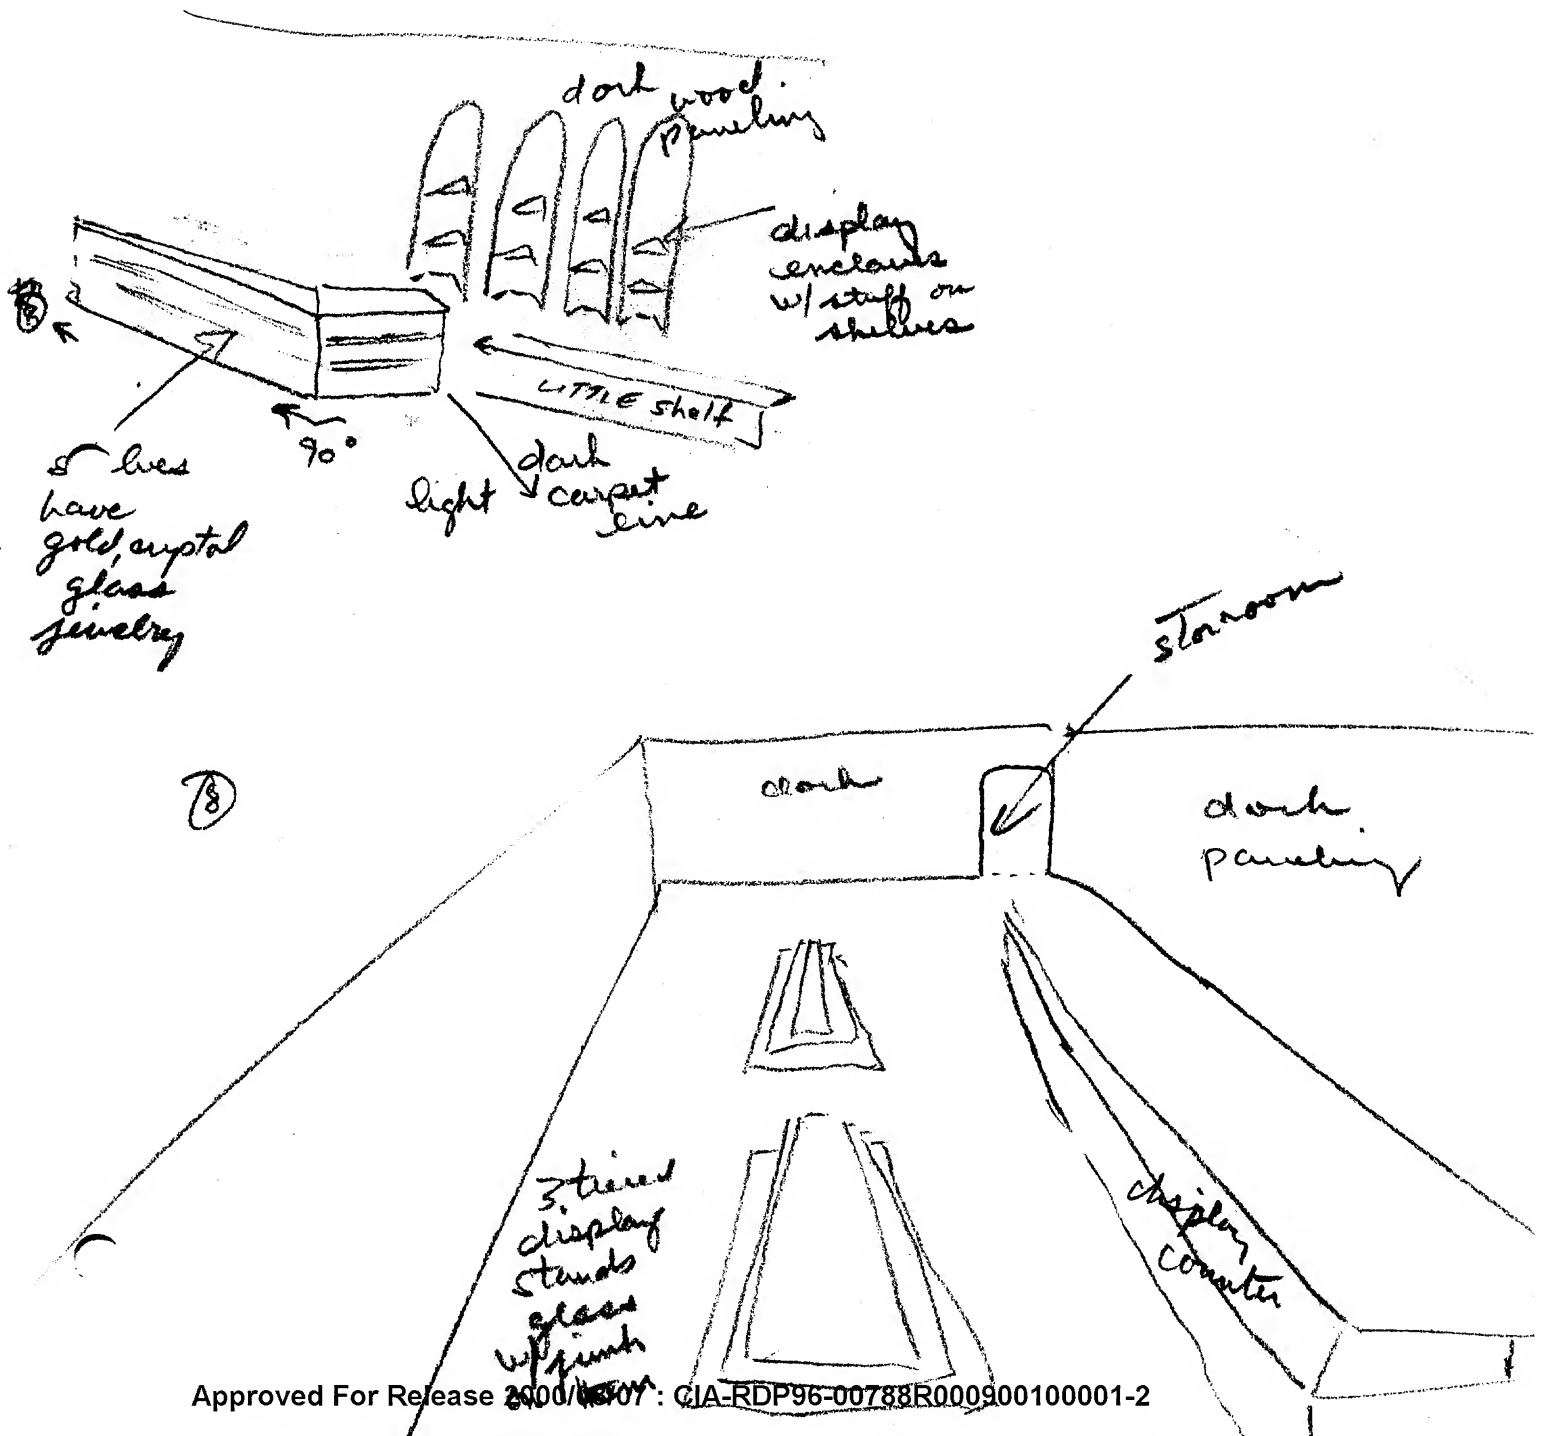 dark wood
paneling
display
enclaves
w/ stuff on
shelves
LITTLE shelf
90°
dark
light carpet
line
have
gold, crystal
glass
jewelry
storroom
8
dark
dark
paneling
3 tiered
display
stands
glass
w/ junk
display
counter
Approved For Release 2000/08/07 : CIA-RDP96-00788R000900100001-2